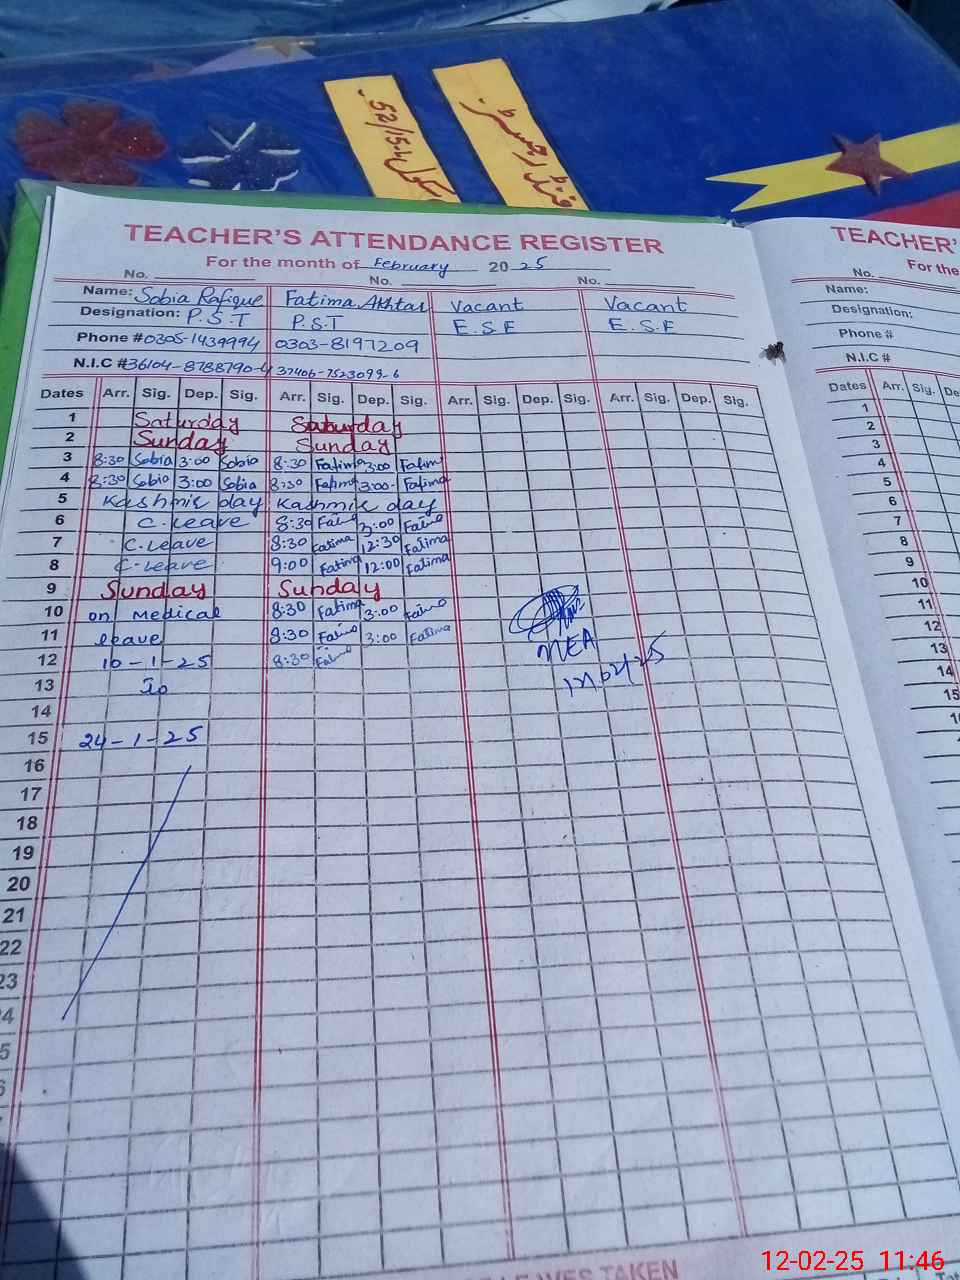 52/15-L
TEACHER'S ATTENDANCE REGISTER
For the month of February 2025
No. No. No.
Name: Sobia Rafique Fatima Akhtar Vacant Vacant
Designation: P.S.T P.S.T E.S.E E.S.E
Phone # 0305-1439994 0303-8197209
N.I.C # 36104-8788790-4 37406-7523099-6
Dates Arr. Sig. Dep. Sig. Arr. Sig. Dep. Sig. Arr. Sig. Dep. Sig. Arr. Sig. Dep. Sig.
1 Saturday Saturday
2 Sunday Sunday
3 8:30 Sobia 3:00 Sobia 8:30 Fatima 3:00 Fatima
4 8:30 Sobia 3:00 Sobia 8:30 Fatima 3:00 Fatima
5 Kashmir day Kashmir day
6 C.Leave 8:30 3:00
7 C.Leave 8:30 Fatima 12:30 Fatima
8 C.Leave 9:00 Fatima 12:00 Fatima
9 Sunday Sunday
10 on Medical 8:30 Fatima 3:00
11 leave 8:30 3:00 Fatima
12 10-1-25 8:30
MEA
12/02/25
13 To
14
15 24-1-25
16
17
18
19
20
21
22
23
24
TEACHER'
For the
No.
Name:
Designation:
Phone #
N.I.C #
Dates Arr. Sig. De
1
2
3
4
5
6
7
8
9
10
11
12
13
14
15
LEAVES TAKEN
12-02-25 11:46